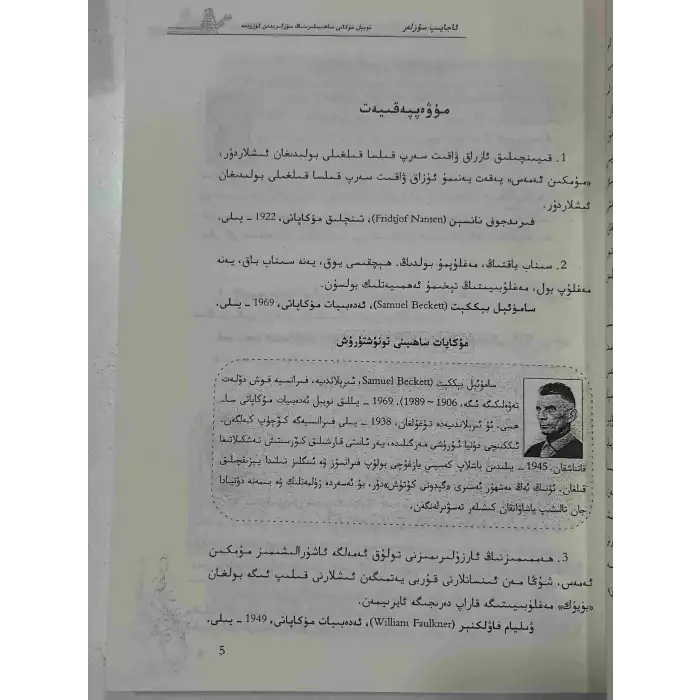 ئاجايىپ سۆزلەر
نوبېل مۇكاپاتى ساھىبلىرىنىڭ سۆزلىرىدىن ئۈزۈندە
مۇۋەپپەقىيەت
1. قىيىنچىلىق ئازراق ۋاقىت سەرپ قىلسا قىلغىلى بولىدىغان ئىشلاردۇر،
«مۇمكىن ئەمەس» پەقەت يەنىمۇ ئۇزاق ۋاقىت سەرپ قىلسا قىلغىلى بولىدىغان
ئىشلاردۇر.
فىرىدجوف نانسېن (Fridtjof Nansen)، تىنچلىق مۇكاپاتى، 1922 ـ يىلى.
2. سىناپ باقتىڭ، مەغلۇپمۇ بولدىڭ. ھېچقىسى يوق، يەنە سىناپ باق، يەنە
مەغلۇپ بول، مەغلۇبىيىتىڭ تېخىمۇ ئەھمىيەتلىك بولسۇن.
سامۇئېل بېككېت (Samuel Beckett)، ئەدەبىيات مۇكاپاتى، 1969 ـ يىلى.
مۇكاپات ساھىبىنى تونۇشتۇرۇش
سامۇئېل بېككېت (Samuel Beckett، ئىرېلاندىيە، فىرانسىيە قوش دۆلەت
تەۋەلىكىگە ئىگە، 1906 ~ 1989)، 1969 ـ يىللىق نوبېل ئەدەبىيات مۇكاپاتى سا-
ھىبى. ئۇ ئىرېلاندىيەدە تۇغۇلغان، 1938 ـ يىلى فىرانسىيەگە كۆچۈپ كەلگەن.
ئىككىنچى دۇنيا ئۇرۇشى مەزگىلىدە، يەر ئاستى قارشىلىق كۆرسىتىش تەشكىلاتىغا
قاتناشقان. 1945 ـ يىلىدىن باشلاپ كەسپىي يازغۇچى بولۇپ فرانسۇز ۋە ئىنگلىز تىلىدا يېزىقچىلىق
قىلغان. ئۇنىڭ ئەڭ مەشھۇر ئەسىرى «گېدونى كۈتۈش»دۇر، بۇ ئەسەردە زۇلمەتلىك ۋە بىمەنە دۇنيادا
جان تالىشىپ ياشاۋاتقان كىشىلەر تەسۋىرلەنگەن.
3. ھەممىمىزنىڭ ئارزۇلىرىمىزنى تولۇق ئەمەلگە ئاشۇرالىشىمىز مۇمكىن
ئەمەس، شۇڭا مەن ئىنسانلارنى قۇربى يەتمىگەن ئىشلارنى قىلىپ ئىگە بولغان
«بۈيۈك» مەغلۇبىيىتىگە قاراپ دەرىجىگە ئايرىيمەن.
ۋىليام فاۋلكنېر (William Faulkner)، ئەدەبىيات مۇكاپاتى، 1949 ـ يىلى.
5